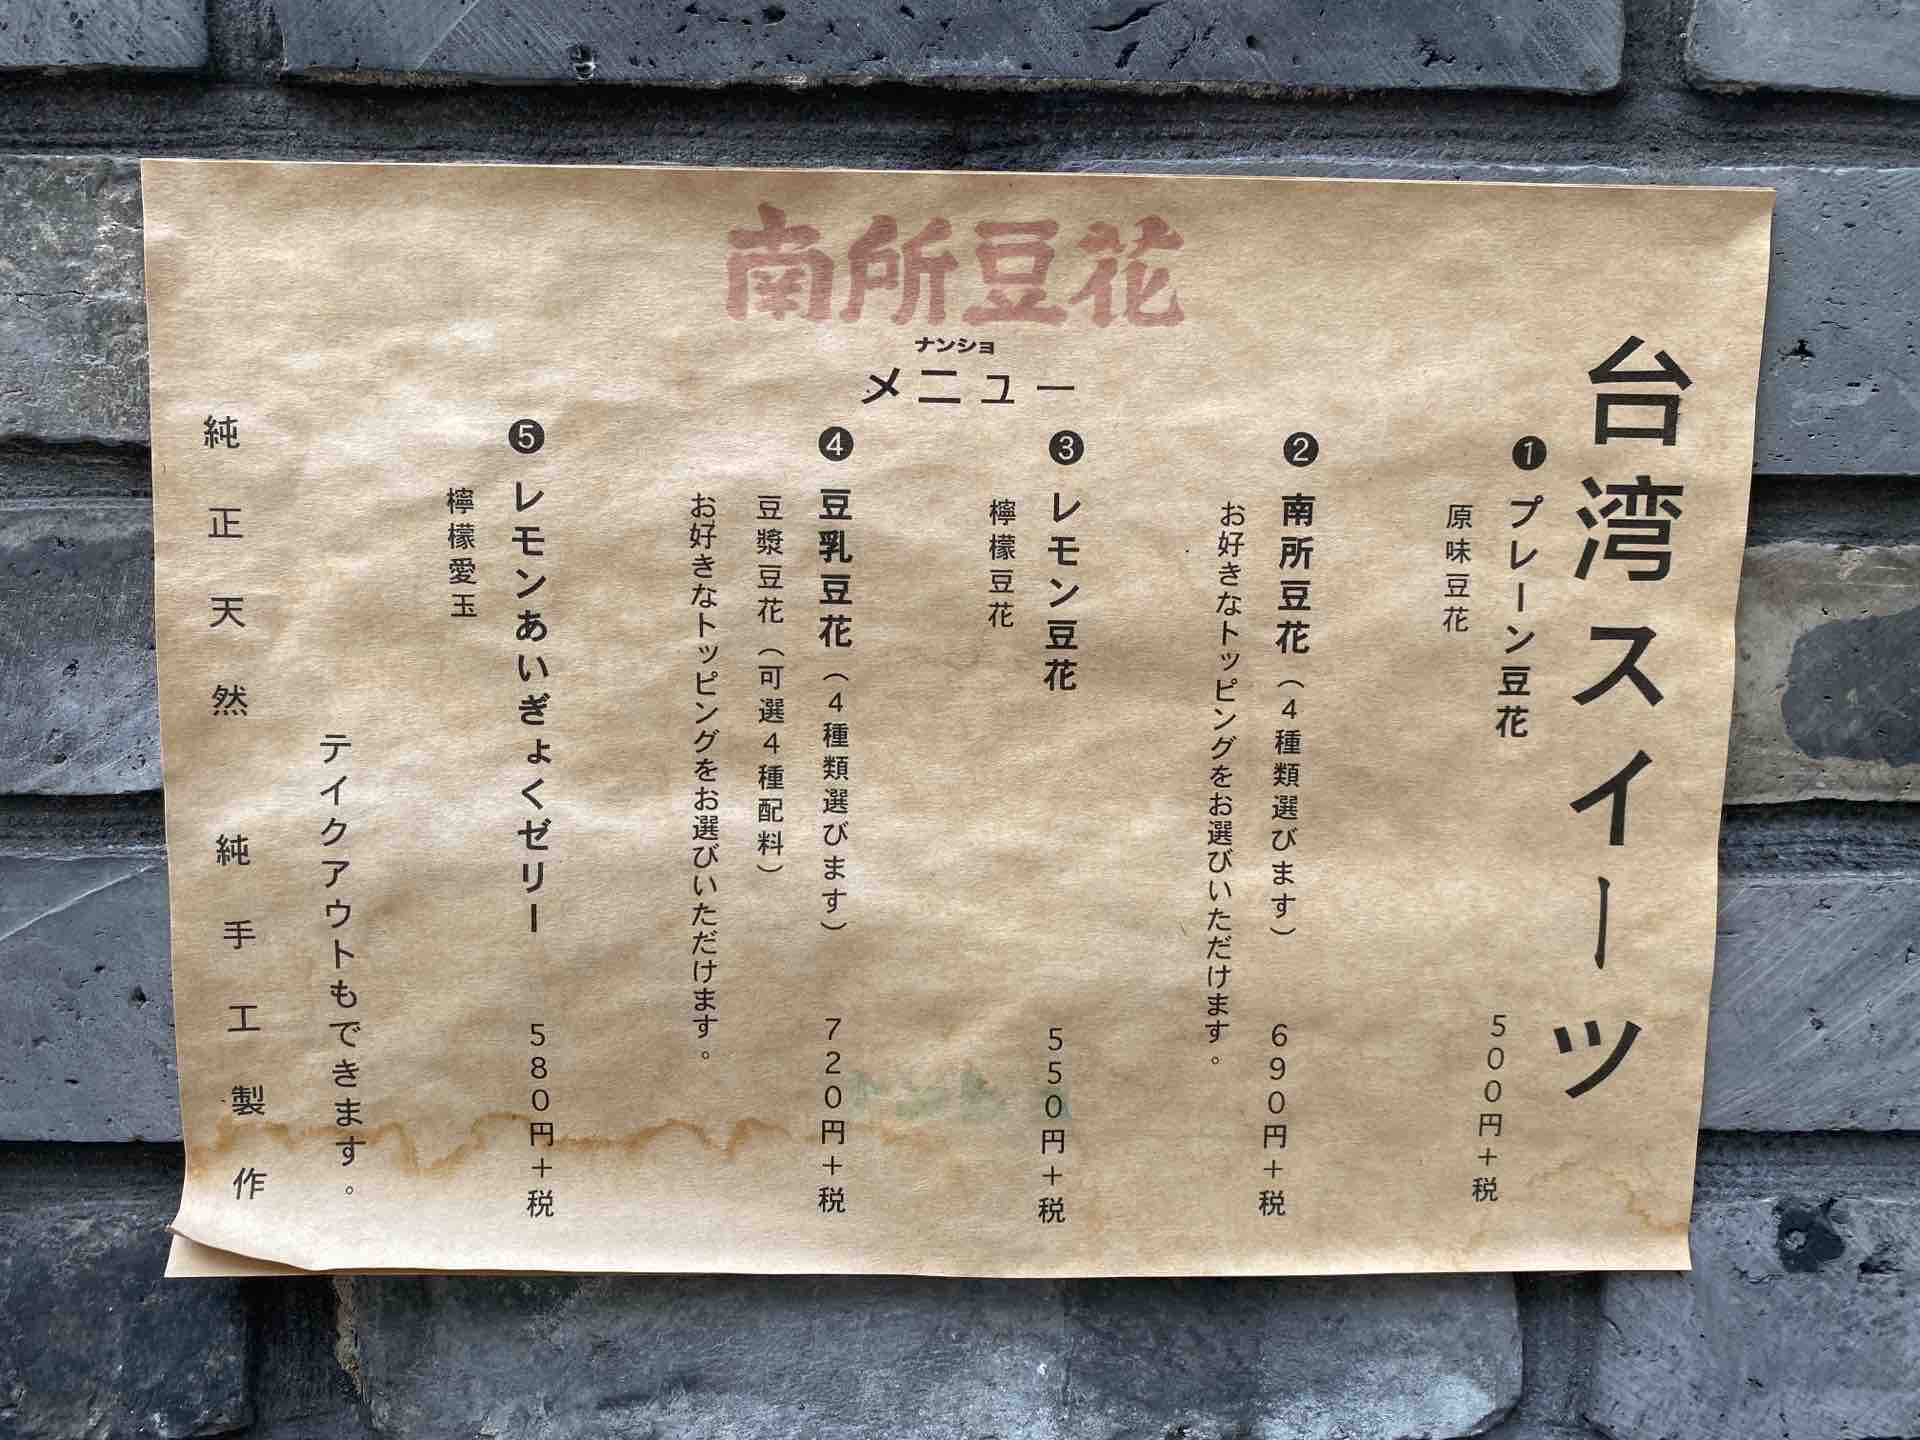 南所豆花
ナンショ
メニュー
台湾スイーツ
❶プレーン豆花 500円+税
原味豆花
❷南所豆花(4種類選びます) 690円+税
お好きなトッピングをお選びいただけます。
❸レモン豆花 550円+税
檸檬豆花
❹豆乳豆花(4種類選びます) 720円+税
豆漿豆花(可選4種配料)
お好きなトッピングをお選びいただけます。
❺レモンあいぎょくゼリー 580円+税
檸檬愛玉
テイクアウトもできます。
純正天然 純手工製作